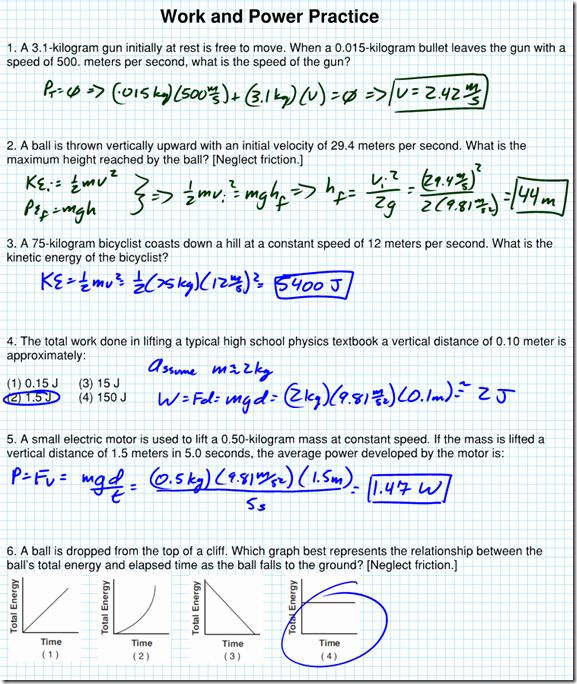 Work and Power Practice
1. A 3.1-kilogram gun initially at rest is free to move. When a 0.015-kilogram bullet leaves the gun with a
speed of 500. meters per second, what is the speed of the gun?
P_T=φ => (.015 kg)(500 m/s) + (3.1 kg)(v) = φ => v = 2.42 m/s
2. A ball is thrown vertically upward with an initial velocity of 29.4 meters per second. What is the
maximum height reached by the ball? [Neglect friction.]
KE_i = ½mv²
PE_f = mgh } => ½mv_i² = mgh_f => h_f = v_i²/2g = (29.4 m/s)²/2(9.81 m/s²) = 44 m
3. A 75-kilogram bicyclist coasts down a hill at a constant speed of 12 meters per second. What is the
kinetic energy of the bicyclist?
KE = ½mv² = ½(75 kg)(12 m/s)² = 5400 J
4. The total work done in lifting a typical high school physics textbook a vertical distance of 0.10 meter is
approximately:
assume m≈2kg
(1) 0.15 J (3) 15 J
(2) 1.5 J (4) 150 J
W = Fd = mgd = (2 kg)(9.81 m/s²)(0.1m) ≈ 2 J
5. A small electric motor is used to lift a 0.50-kilogram mass at constant speed. If the mass is lifted a
vertical distance of 1.5 meters in 5.0 seconds, the average power developed by the motor is:
P = Fv = mgd/t = (0.5 kg)(9.81 m/s²)(1.5m)/5s = 1.47 W
6. A ball is dropped from the top of a cliff. Which graph best represents the relationship between the
ball's total energy and elapsed time as the ball falls to the ground? [Neglect friction.]
Total Energy Total Energy Total Energy Total Energy
Time Time Time Time
(1) (2) (3) (4)